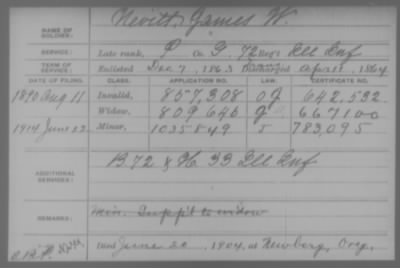 Nevitt, James W.
NAME OF SOLDIER:
SERVICE: Late rank, P Co. G, 72 Reg't Ill Inf
TERM OF SERVICE: Enlisted Dec 7, 1863 Discharged April, 1864
DATE OF FILING. CLASS. APPLICATION NO. LAW. CERTIFICATE NO.
1890 Aug 11 Invalid, 857,308 642,532
Widow, 809646 G 667100
1914 June 22 Minor, 1035849 J 783,095
ADDITIONAL SERVICES: B 72 & H 33 Ill Inf
REMARKS: Min. Supp'l to widow
Died June 20 1904, at Newberg, Oreg.